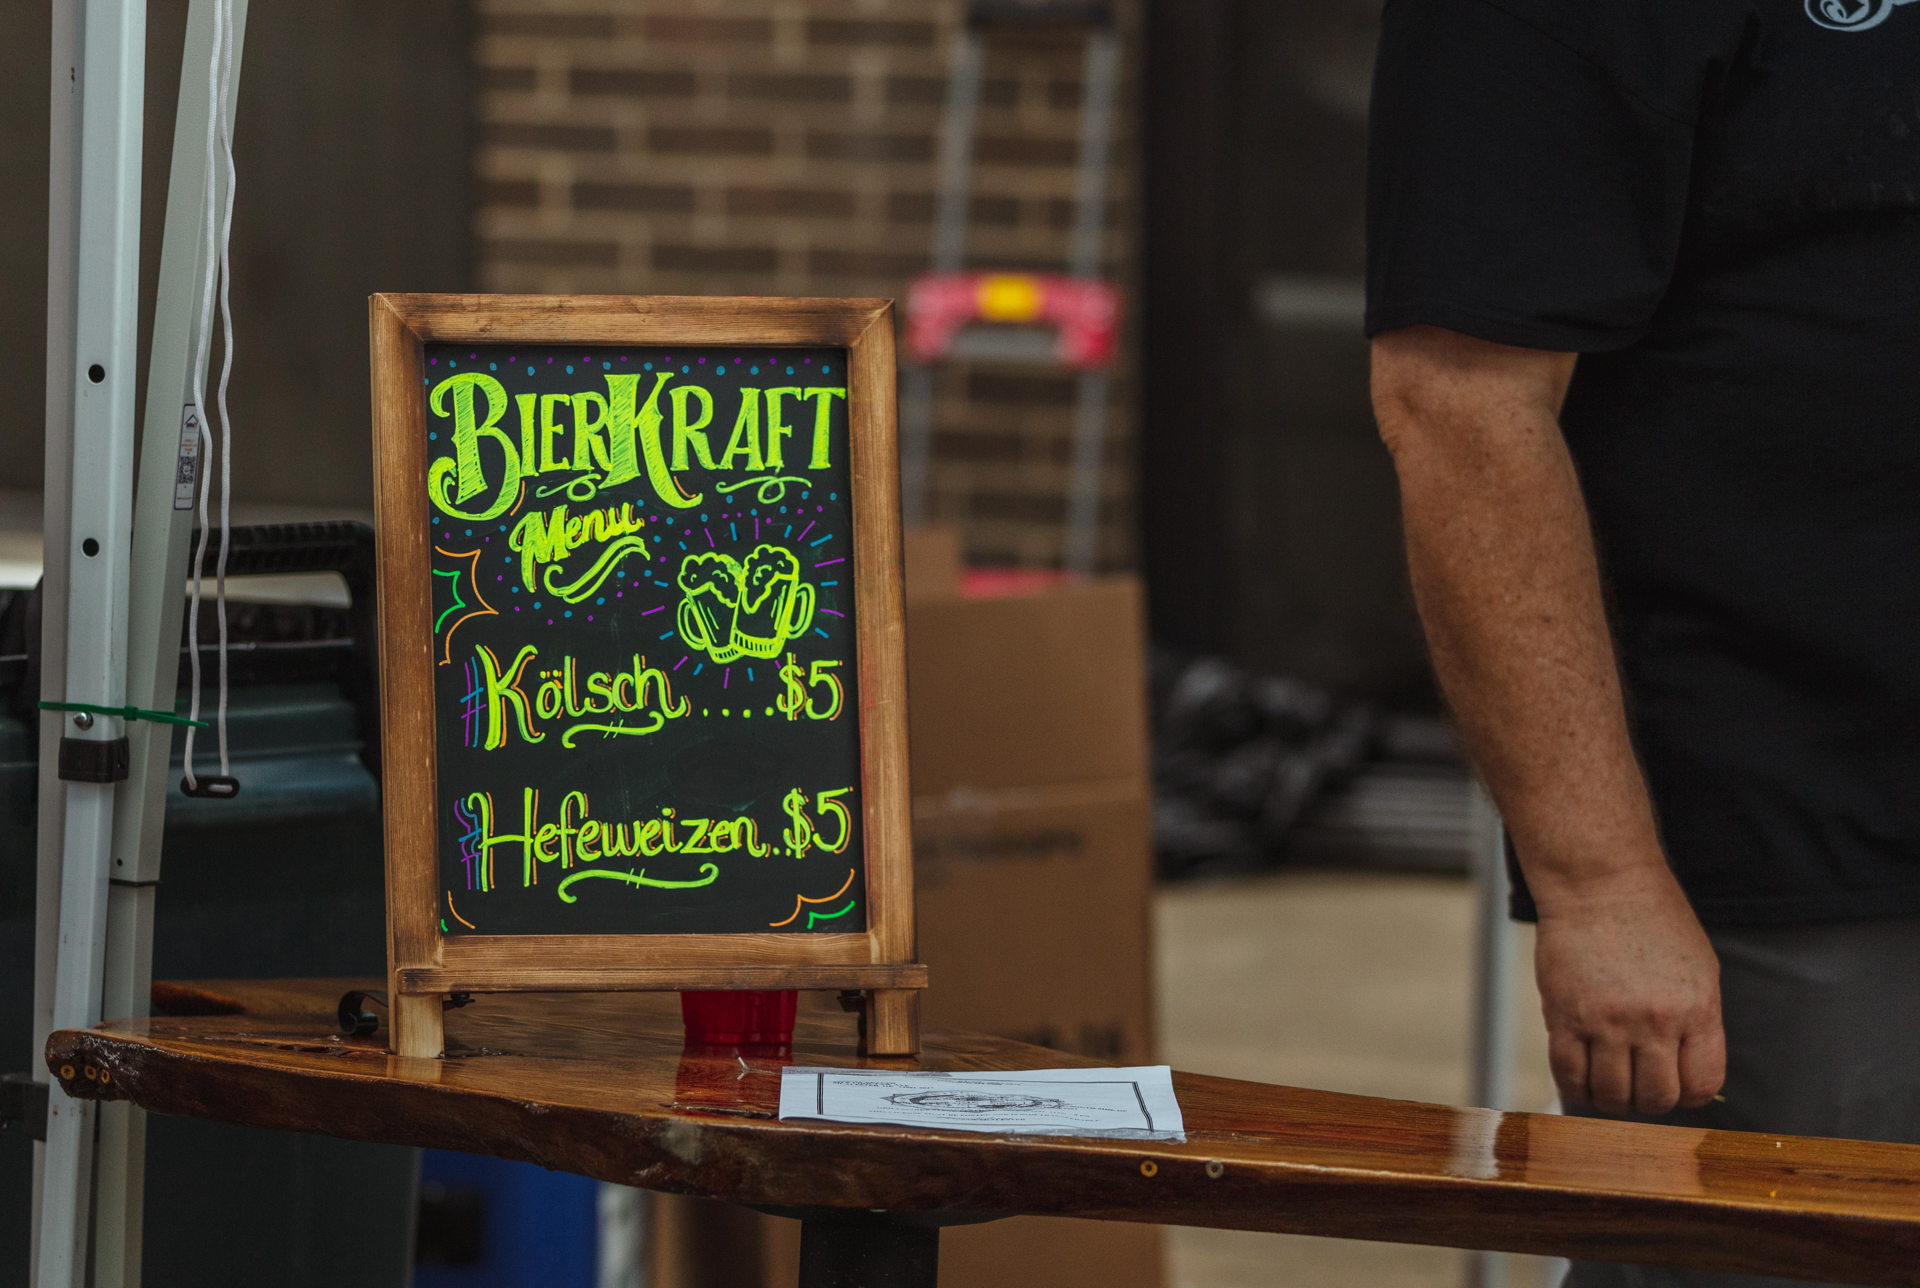 BIERKRAFT
Menu
Kölsch.....$5
Hefeweizen..$5